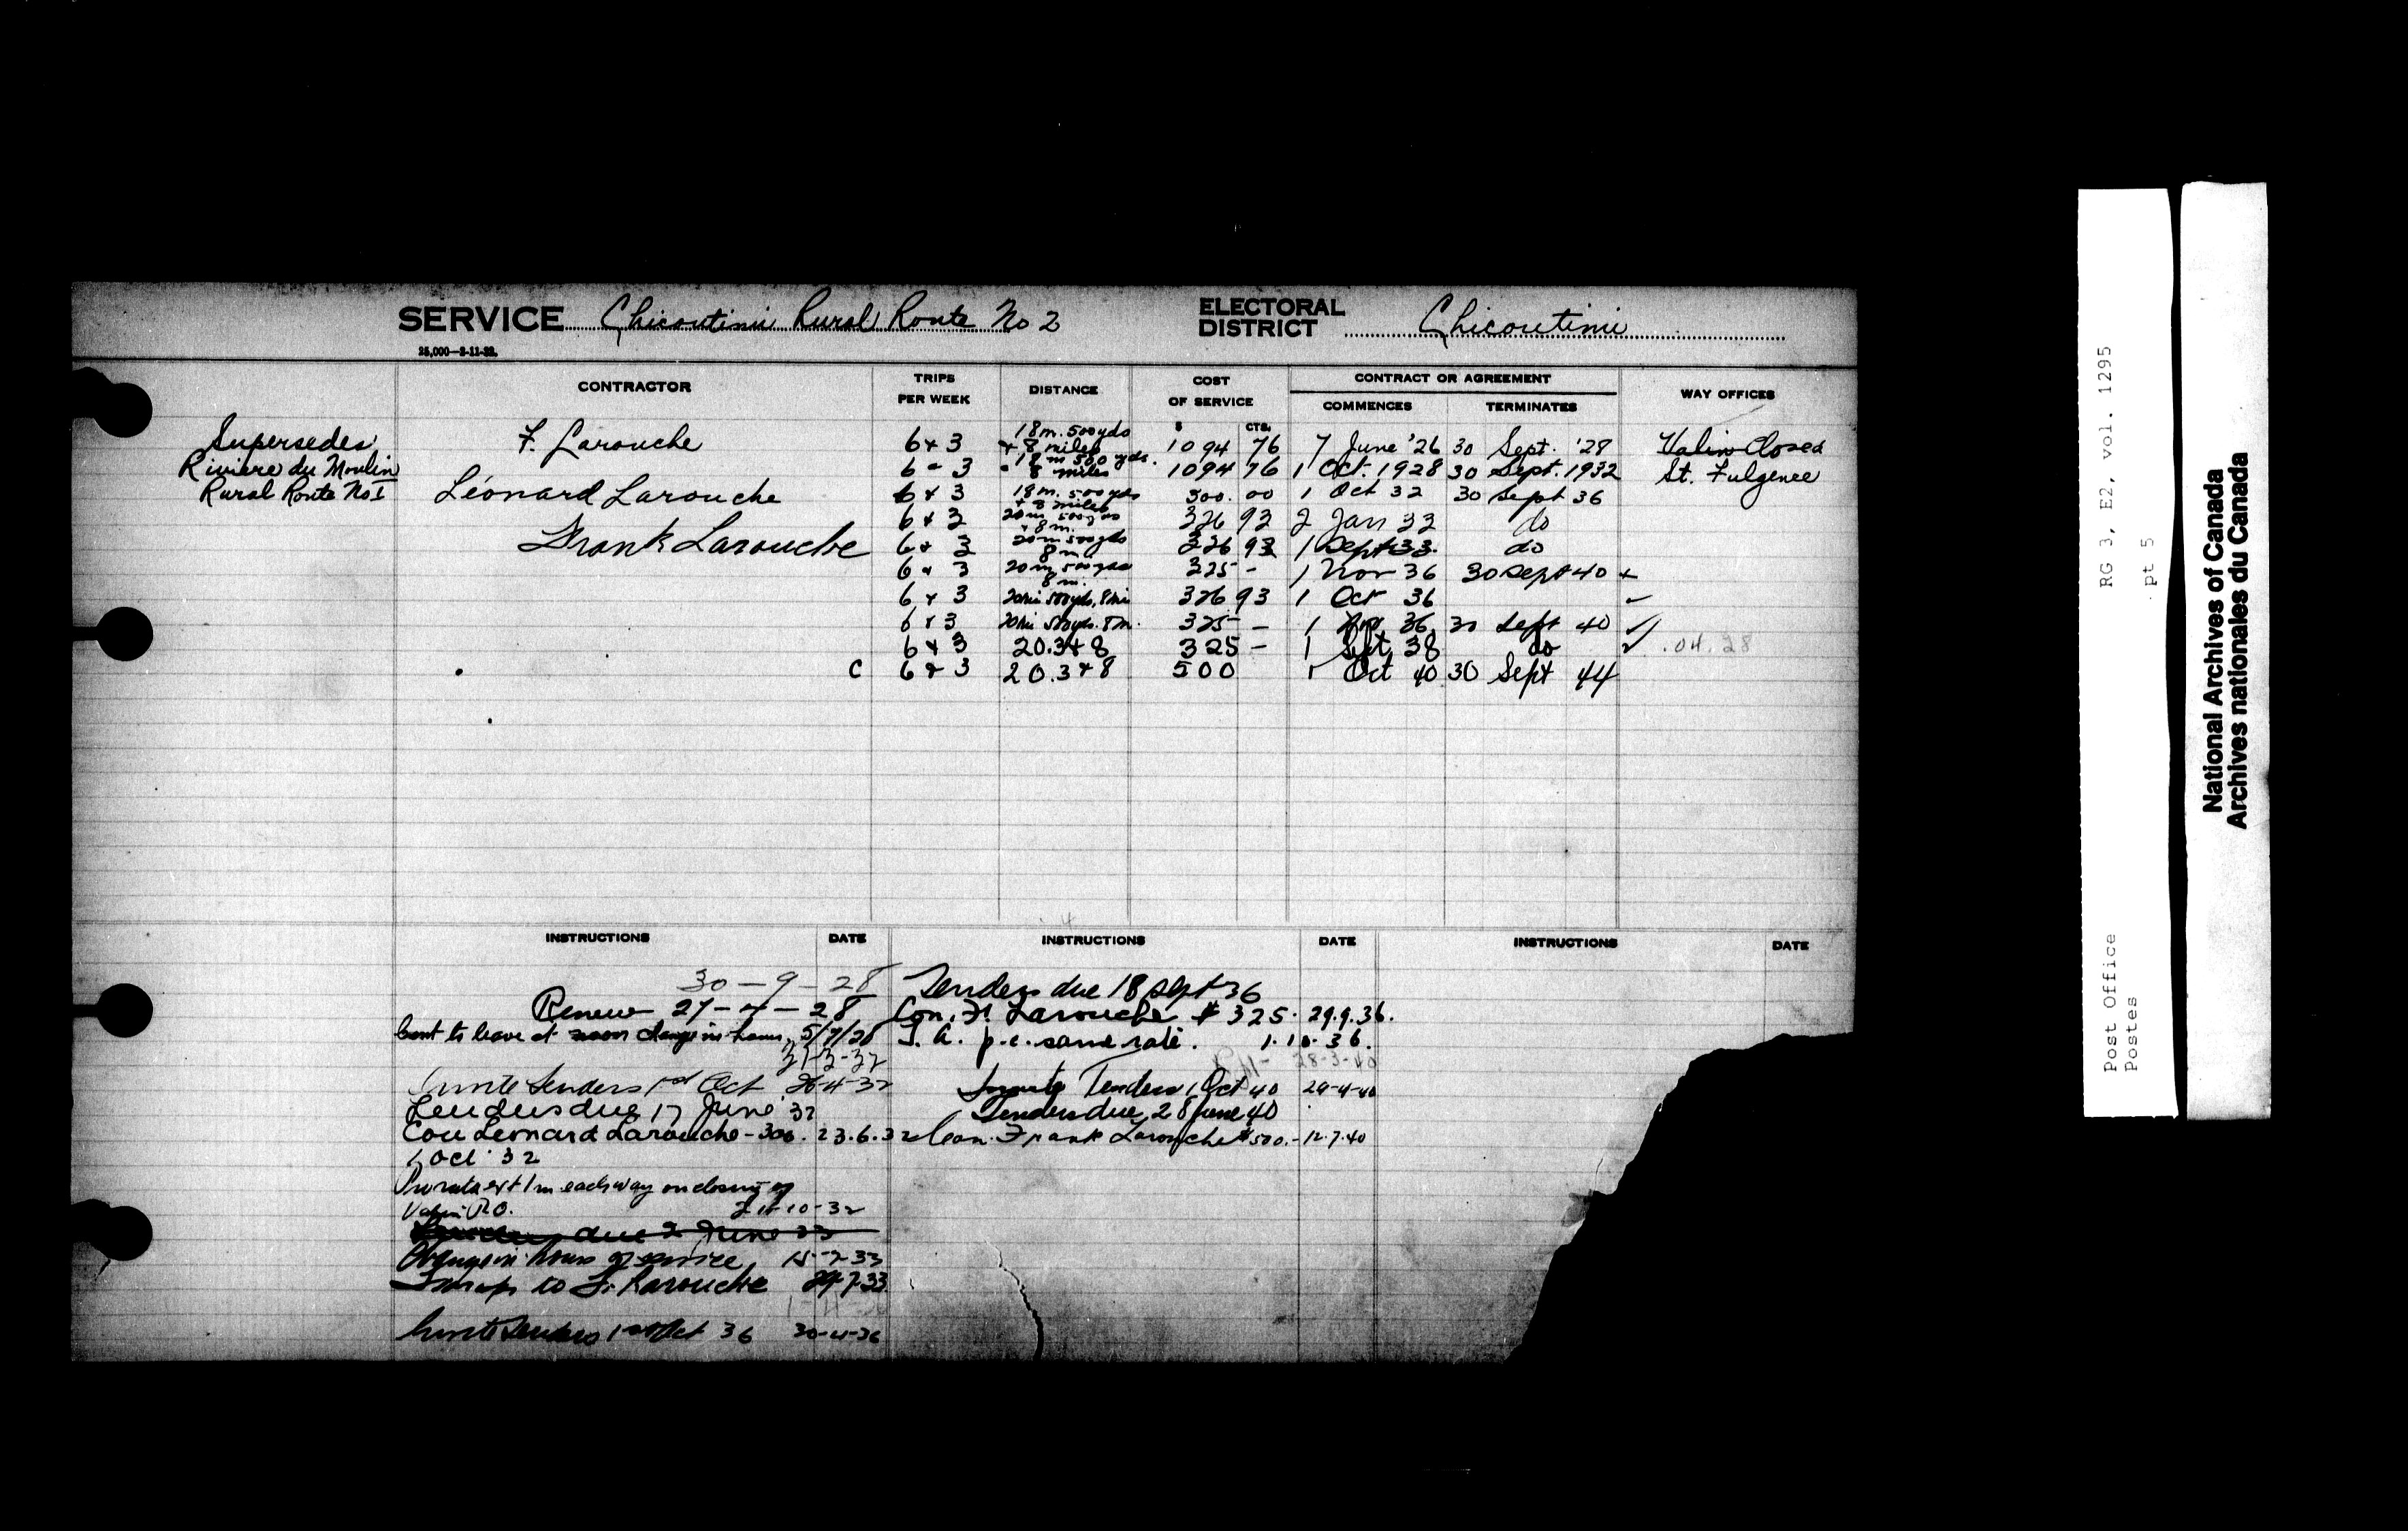 SERVICE Chicoutimi Rural Route No 2 ELECTORAL DISTRICT Chicoutimi
25,000—8-11-22.
CONTRACTOR TRIPS PER WEEK DISTANCE COST OF SERVICE CONTRACT OR AGREEMENT COMMENCES TERMINATES WAY OFFICES
$ CTS.
Supersedes F. Larouche 6 + 3 18 m. 500 yds + 8 miles 1094 76 7 June '26 30 Sept. '28 Valin Closed
Riviere du Moulin 6 " 3 18 m 500 yds. " 8 miles 1094 76 1 Oct. 1928 30 Sept. 1932 St. Fulgence
Rural Route No 1 Léonard Larouche 6 + 3 18 m. 500 yds + 8 miles 300. 00 1 Oct 32 30 Sept 36
6 + 3 20 m 500 yds + 8 m. 326 93 2 Jan 33 do
Frank Larouche 6 + 3 20 m 500 yds 8 m 326 93 1 Sept 33. do
6 + 3 20 m 500 yds 8 m. 325 - 1 Nov 36 30 Sept 40 +
6 + 3 20 mi 500 yds, 8 mi 326 93 1 Oct 36
6 + 3 20 mi 500 yds. 8 m. 325 — 1 Nov 36 30 Sept 40 ✓
6 + 3 20.3 + 8 325 - 1 Sept 38 do ✓ .04.28
C 6 + 3 20.3 + 8 500 1 Oct 40 30 Sept 44
INSTRUCTIONS DATE INSTRUCTIONS DATE INSTRUCTIONS DATE
30 — 9 — 28
Renew 27 — 4 — 28
Cont to leave at noon change in hours, 5/7/28
Invite Tenders 1st Oct 26-4-32
Tenders due 17 June 32
Con Leonard Larouche - 300. 23.6.32
1 Oct 32
Pro rata ext 1 m each way on closing of
Valin P.O. 24-10-32
Tenders due 2 June 33
Change in hours of service 15-7-33
to F. Larouche 29-7-33
Invite Tenders 1st Oct 36 30-4-36
Tenders due 18 Sept 36
Con. F. Larouche $ 325. 29.9.36.
T. A. p.c. same rate. 1.10.36.
28-3-40
Invite Tenders 1 Oct 40 29-4-40
Tenders due 28 June 40
Con. Frank Larouche $500.- 12.7.40
Post Office RG 3, E2, vol. 1295
Postes pt 5
National Archives of Canada
Archives nationales du Canada